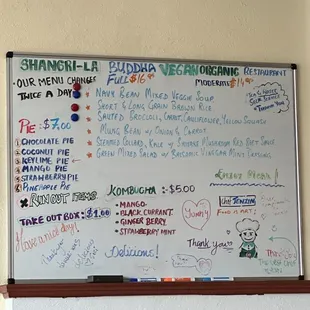 SHANGRI-LA BUDDHA VEGAN ORGANIC RESTAURANT
OUR MENU CHANGES
TWICE A DAY
FULL $16.99
MODERATE $14.99
NAVY BEAN MIXED VEGGIE SOUP
SHORT & LONG GRAIN BROWN RICE
SAUTÉED BROCCOLI, CARROT, CAULIFLOWER, YELLOW SQUASH
MUNG BEAN W/ ONION & CARROT
STEAMED COLLARD, KALE W/ SESAME MUSHROOM RED BEET SAUCE
GREEN MIXED SALAD W/ BALSAMIC VINEGAR
PIE: $7.00
CHOCOLATE PIE
COCONUT PIE
KEYLIME PIE
MANGO PIE
STRAWBERRY PIE
PINEAPPLE PIE
RUN OUT ITEMS
TAKE OUT BOX: $1.00
Have a nice day!
KOMBUCHA: $5.00
MANGO
BLACK CURRANT
GINGER BERRY
STRAWBERRY MINT
Delicious!
Yummy
Thank you
FOOD IS ART!